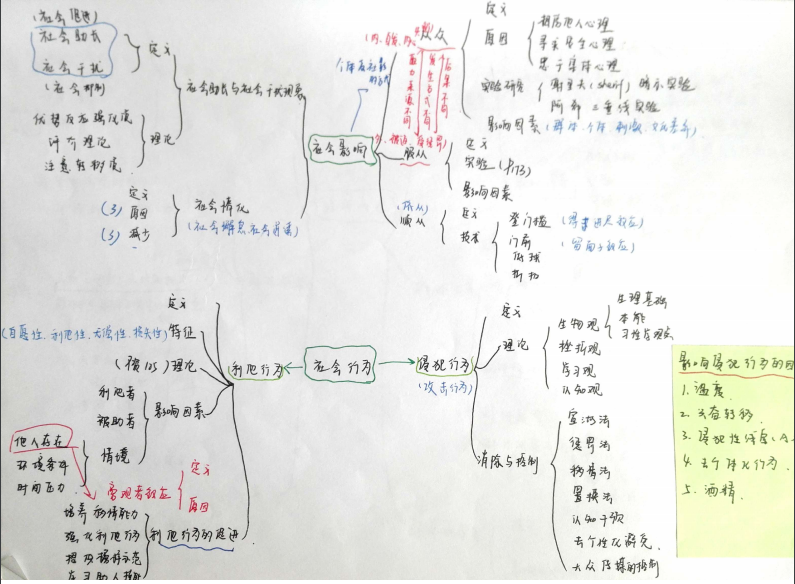 (社会促进)
社会助长
社会干扰
(社会抑制)
定义
优势反应强化说
评价理论
注意转移说
理论
社会助长与社会干扰现象
定义
(3) 原因
(3) 减少
社会惰化
(社会懈怠、社会逍遥)
社会影响
从众
定义
原因
寻求居先心理
忠于集体心理
实验研究
谢里夫 (sherif) 暗示实验
阿希 三垂线实验
影响因素
服从
定义
实验 (P173)
影响因素
顺从
定义
技术
登门槛
(得寸进尺效应)
门前
(留面子效应)
低球
折扣
社会行为
利他行为
定义
特征
(自愿性、利他性、无偿性、损失性)
(横105) 理论
影响因素
利他者
被助者
情境
他人存在
环境条件
时间压力
旁观者效应
定义
原因
利他行为的促进
培养移情能力
强化利他行为
提供榜样示范
侵犯行为
(攻击行为)
定义
理论
生物观
生理基础
本能
习性学观点
挫折观
学习观
认知观
消除与控制
宣泄法
惩罚法
移情法
置换法
认知干预
去个性化避免
大众传媒的控制
影响侵犯行为的因
1. 温度
2. 兴奋转移
3. 侵犯性线索
4. 去个体化行为
5. 酒精